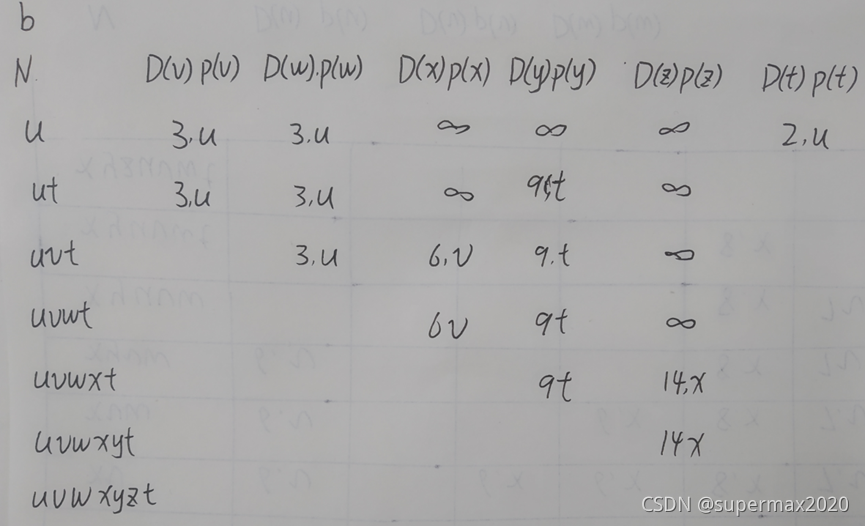 b
N. D(v) p(v) D(w).p(w) D(x)p(x) D(y)p(y) D(z)p(z) D(t) p(t)
u 3.u 3.u ∞ ∞ ∞ 2.u
ut 3.u 3.u ∞ 9,t ∞
uvt 3.u 6.v 9.t ∞
uvwt 6v 9t ∞
uvwxt 9t 14.x
uvwxyt 14x
uvwxyzt
CSDN @supermax2020